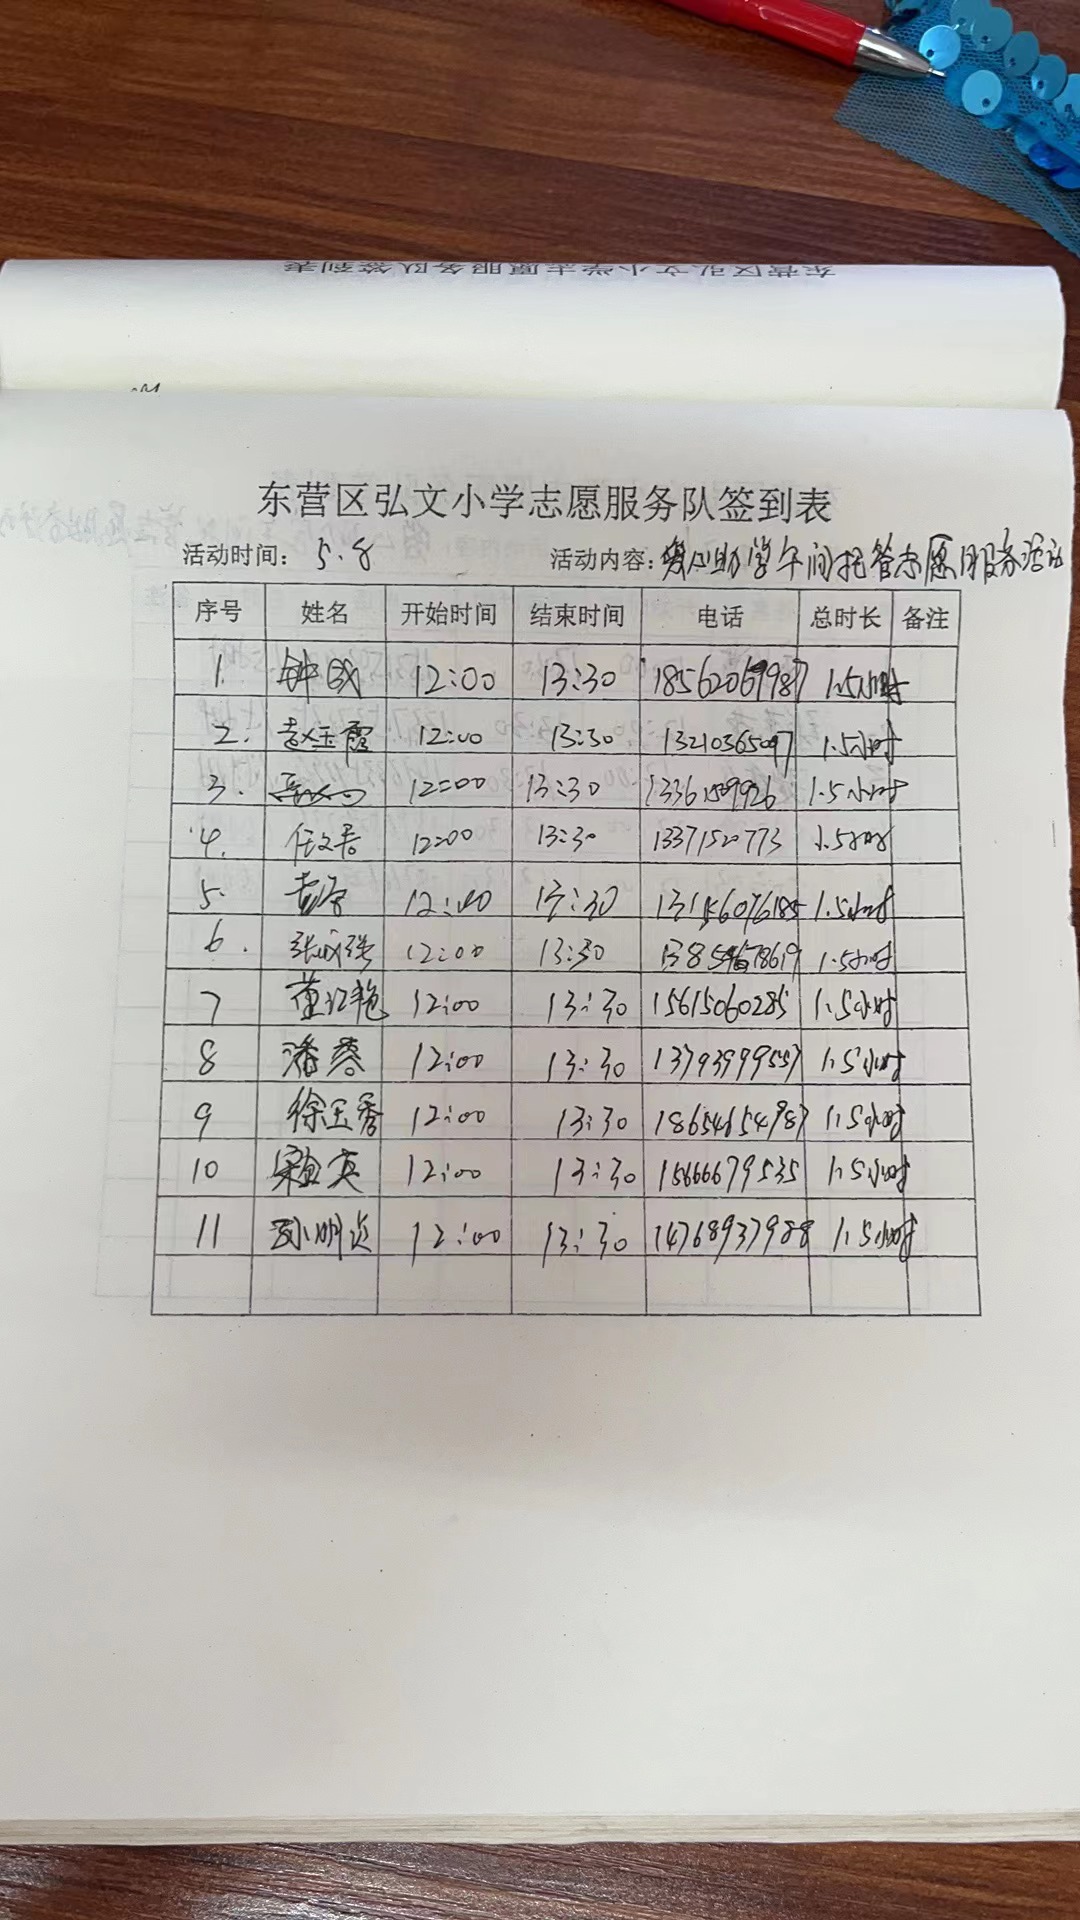 东营区弘文小学志愿服务队签到表
东营区弘文小学志愿服务队签到表
活动时间: 5.8 活动内容: 爱心助学午间托管志愿服务活动
序号 姓名 开始时间 结束时间 电话 总时长 备注
1. 钟 12:00 13:30 18562069987 1.5小时
2. 赵玉霞 12:00 13:30 13210365097 1.5小时
3. 12:00 13:30 13361509926 1.5小时
4. 任文善 12:00 13:30 13371520773 1.5小时
5. 12:00 13:30 13156076185 1.5小时
6. 张成强 12:00 13:30 1.5小时
7 董红艳 12:00 13:30 15615060285 1.5小时
8 潘蓉 12:00 13:30 13793999557 1.5小时
9 徐玉秀 12:00 13:30 18654654987 1.5小时
10 12:00 13:30 15666679535 1.5小时
11 孙明贞 12:00 13:30 14768937988 1.5小时